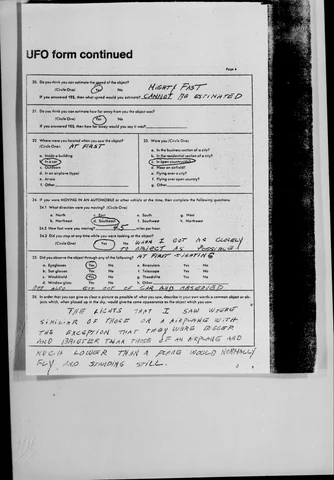 UFO form continued
Page 4
20. Do you think you can estimate the speed of the object?
(Circle One) Yes No MIGHTY FAST
If you answered YES, then what speed would you estimate? CANNOT BE ESTIMATED
21. Do you think you can estimate how far away from you the object was?
(Circle One) Yes No
If you answered YES, then how far away would you say it was?
22. Where were you located when you saw the object?
(Circle One) AT FIRST
a. Inside a building
b. In a car
c. Outdoors
d. In an airplane (type)
e. At sea
f. Other
23. Were you (Circle One)
a. In the business section of a city?
b. In the residential section of a city?
c. In open countryside?
d. Near an airfield?
e. Flying over a city?
f. Flying over open country?
g. Other
24. If you were MOVING IN AN AUTOMOBILE or other vehicle at the time, then complete the following questions:
24.1 What direction were you moving? (Circle One)
a. North c. East e. South g. West
b. Northeast d. Southeast f. Southwest h. Northwest
24.2 How fast were you moving? 45 miles per hour.
24.3 Did you stop at any time while you were looking at the object?
(Circle One) Yes No WHEN I GOT AS CLOSELY
TO OBJECT AS POSSIBLE!
25. Did you observe the object through any of the following? AT FIRST SIGHTING
a. Eyeglasses Yes No e. Binoculars Yes No
b. Sun glasses Yes No f. Telescope Yes No
c. Windshield Yes No g. Theodolite Yes No
d. Window glass Yes No h. Other
BUT ALSO GOT OUT OF CAR AND OBSERVED
26. In order that you can give as clear a picture as possible of what you saw, describe in your own words a common object or ob-
jects which, when placed up in the sky, would give the same appearance as the object which you saw.
THE LIGHTS THAT I SAW WERE
SIMILIAR OF THOSE OR A AIRPLANE WITH
THE EXCEPTION THAT THEY WERE BIGGER
AND BRIGTER THAN THOSE OF AN AIRPLANE AND
MUCH LOWER THAN A PLANE WOULD NORMALLY
FLY AND STANDING STILL.